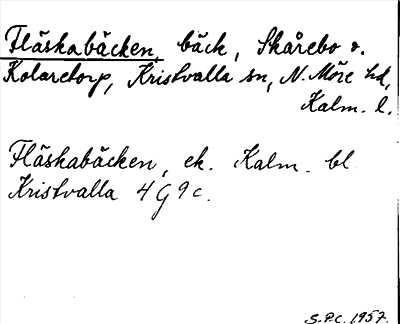 Fläskabäcken, bäck, Skårebo o.
Kolaretorp, Kristvalla sn, N. Möre hd,
Kalm. l.
Fläskabäcken, ek. Kalm. bl
Kristvalla 4 G 9 c.
S.P.C. 1957.